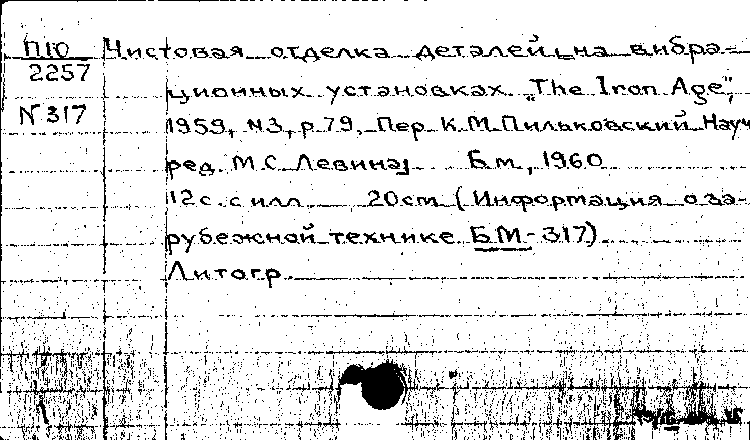 П10
2257
N 317
Чистовая отделка деталей на вибра-
ционных установках „The Iron Age",
1959, N3, p.79. Пер. К.М.Пильковский Науч
ред. М.С. Левина] Б.м., 1960
12с. с илл 20cm (Информация о за-
рубежной технике БМ-317)
Литогр.